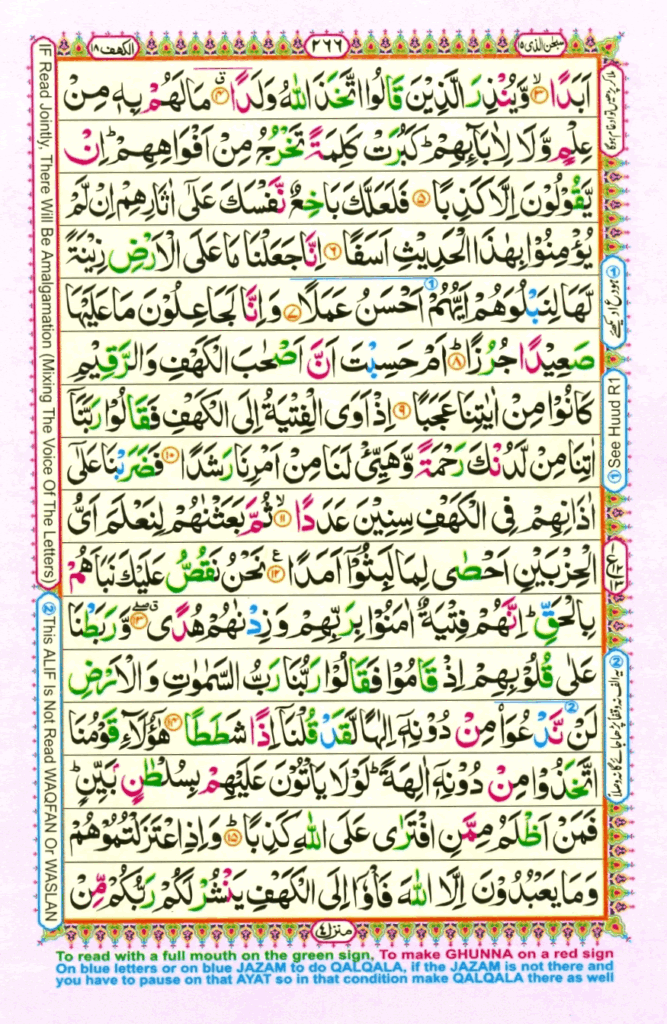 سبحٰن الذی ۱۵
۲۶۶
الکهف ۱۸
اَبَدًا ۙ﴿۳﴾ وَّیُنْذِرَ الَّذِیْنَ قَالُوا اتَّخَذَ اللّٰهُ وَلَدًا ۗ﴿۴﴾ مَا لَهُمْ بِهٖ مِنْ
عِلْمٍ وَّلَا لِاٰبَآىِٕهِمْ ؕ كَبُرَتْ كَلِمَةً تَخْرُجُ مِنْ اَفْوَاهِهِمْ ؕ اِنْ
یَّقُوْلُوْنَ اِلَّا كَذِبًا ﴿۵﴾ فَلَعَلَّكَ بَاخِعٌ نَّفْسَكَ عَلٰۤی اٰثَارِهِمْ اِنْ لَّمْ
یُؤْمِنُوْا بِهٰذَا الْحَدِیْثِ اَسَفًا ﴿۶﴾ اِنَّا جَعَلْنَا مَا عَلَی الْاَرْضِ زِیْنَةً
لَّهَا لِنَبْلُوَهُمْ اَیُّهُمْ اَحْسَنُ عَمَلًا ﴿۷﴾ وَ اِنَّا لَجَاعِلُوْنَ مَا عَلَیْهَا
صَعِیْدًا جُرُزًا ؕ﴿۸﴾ اَمْ حَسِبْتَ اَنَّ اَصْحٰبَ الْكَهْفِ وَالرَّقِیْمِ
كَانُوْا مِنْ اٰیٰتِنَا عَجَبًا ﴿۹﴾ اِذْ اَوَی الْفِتْیَةُ اِلَی الْكَهْفِ فَقَالُوْا رَبَّنَاۤ
اٰتِنَا مِنْ لَّدُنْكَ رَحْمَةً وَّهَیِّئْ لَنَا مِنْ اَمْرِنَا رَشَدًا ﴿۱۰﴾ فَضَرَبْنَا عَلٰۤی
اٰذَانِهِمْ فِی الْكَهْفِ سِنِیْنَ عَدَدًا ۙ﴿۱۱﴾ ثُمَّ بَعَثْنٰهُمْ لِنَعْلَمَ اَیُّ
الْحِزْبَیْنِ اَحْصٰی لِمَا لَبِثُوْۤا اَمَدًا ﴿۱۲﴾ نَحْنُ نَقُصُّ عَلَیْكَ نَبَاَهُمْ
بِالْحَقِّ ؕ اِنَّهُمْ فِتْیَةٌ اٰمَنُوْا بِرَبِّهِمْ وَزِدْنٰهُمْ هُدًی ﴿۱۳﴾ وَّرَبَطْنَا
عَلٰی قُلُوْبِهِمْ اِذْ قَامُوْا فَقَالُوْا رَبُّنَا رَبُّ السَّمٰوٰتِ وَالْاَرْضِ
لَنْ نَّدْعُوَا۠ مِنْ دُوْنِهٖۤ اِلٰهًا لَّقَدْ قُلْنَاۤ اِذًا شَطَطًا ﴿۱۴﴾ هٰۤؤُلَآءِ قَوْمُنَا
اتَّخَذُوْا مِنْ دُوْنِهٖۤ اٰلِهَةً ؕ لَوْلَا یَاْتُوْنَ عَلَیْهِمْ بِسُلْطٰنٍۭ بَیِّنٍ ؕ
فَمَنْ اَظْلَمُ مِمَّنِ افْتَرٰی عَلَی اللّٰهِ كَذِبًا ؕ﴿۱۵﴾ وَاِذِ اعْتَزَلْتُمُوْهُمْ
وَمَا یَعْبُدُوْنَ اِلَّا اللّٰهَ فَاْوٗۤا اِلَی الْكَهْفِ یَنْشُرْ لَكُمْ رَبُّكُمْ مِّنْ
منزل ۴
IF Read Jointly, There Will Be Amalgamation (Mixing The Voice Of The Letters)
② This ALIF Is Not Read WAQFAN Or WASLAN
① See Huud R1
To read with a full mouth on the green sign, To make GHUNNA on a red sign
On blue letters or on blue JAZAM to do QALQALA, if the JAZAM is not there and
you have to pause on that AYAT so in that condition make QALQALA there as well